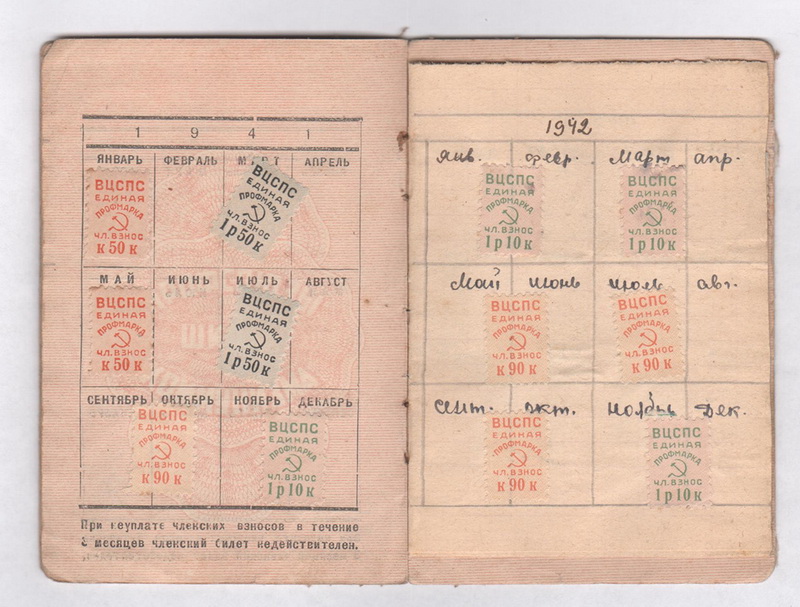 1 9 4 1
ЯНВАРЬ ФЕВРАЛЬ МАРТ АПРЕЛЬ
ВЦСПС
ЕДИНАЯ
ПРОФМАРКА
ЧЛ. ВЗНОС
К 50 К
ВЦСПС
ЕДИНАЯ
ПРОФМАРКА
ЧЛ. ВЗНОС
1 р 50 к
МАЙ ИЮНЬ ИЮЛЬ АВГУСТ
ВЦСПС
ЕДИНАЯ
ПРОФМАРКА
ЧЛ. ВЗНОС
К 50 К
ВЦСПС
ЕДИНАЯ
ПРОФМАРКА
ЧЛ. ВЗНОС
1 р 50 к
СЕНТЯБРЬ ОКТЯБРЬ НОЯБРЬ ДЕКАБРЬ
ВЦСПС
ЕДИНАЯ
ПРОФМАРКА
ЧЛ. ВЗНОС
К 90 К
ВЦСПС
ЕДИНАЯ
ПРОФМАРКА
ЧЛ. ВЗНОС
1 р 10 к
При неуплате членских взносов в течение
3 месяцев членский билет недействителен.
1942
янв. февр. март апр.
ВЦСПС
ЕДИНАЯ
ПРОФМАРКА
ЧЛ. ВЗНОС
1 р 10 к
ВЦСПС
ЕДИНАЯ
ПРОФМАРКА
ЧЛ. ВЗНОС
1 р 10 к
май июнь июль авг.
ВЦСПС
ЕДИНАЯ
ПРОФМАРКА
ЧЛ. ВЗНОС
К 90 К
ВЦСПС
ЕДИНАЯ
ПРОФМАРКА
ЧЛ. ВЗНОС
К 90 К
сент. окт. ноябрь дек.
ВЦСПС
ЕДИНАЯ
ПРОФМАРКА
ЧЛ. ВЗНОС
К 90 К
ВЦСПС
ЕДИНАЯ
ПРОФМАРКА
ЧЛ. ВЗНОС
1 р 10 к